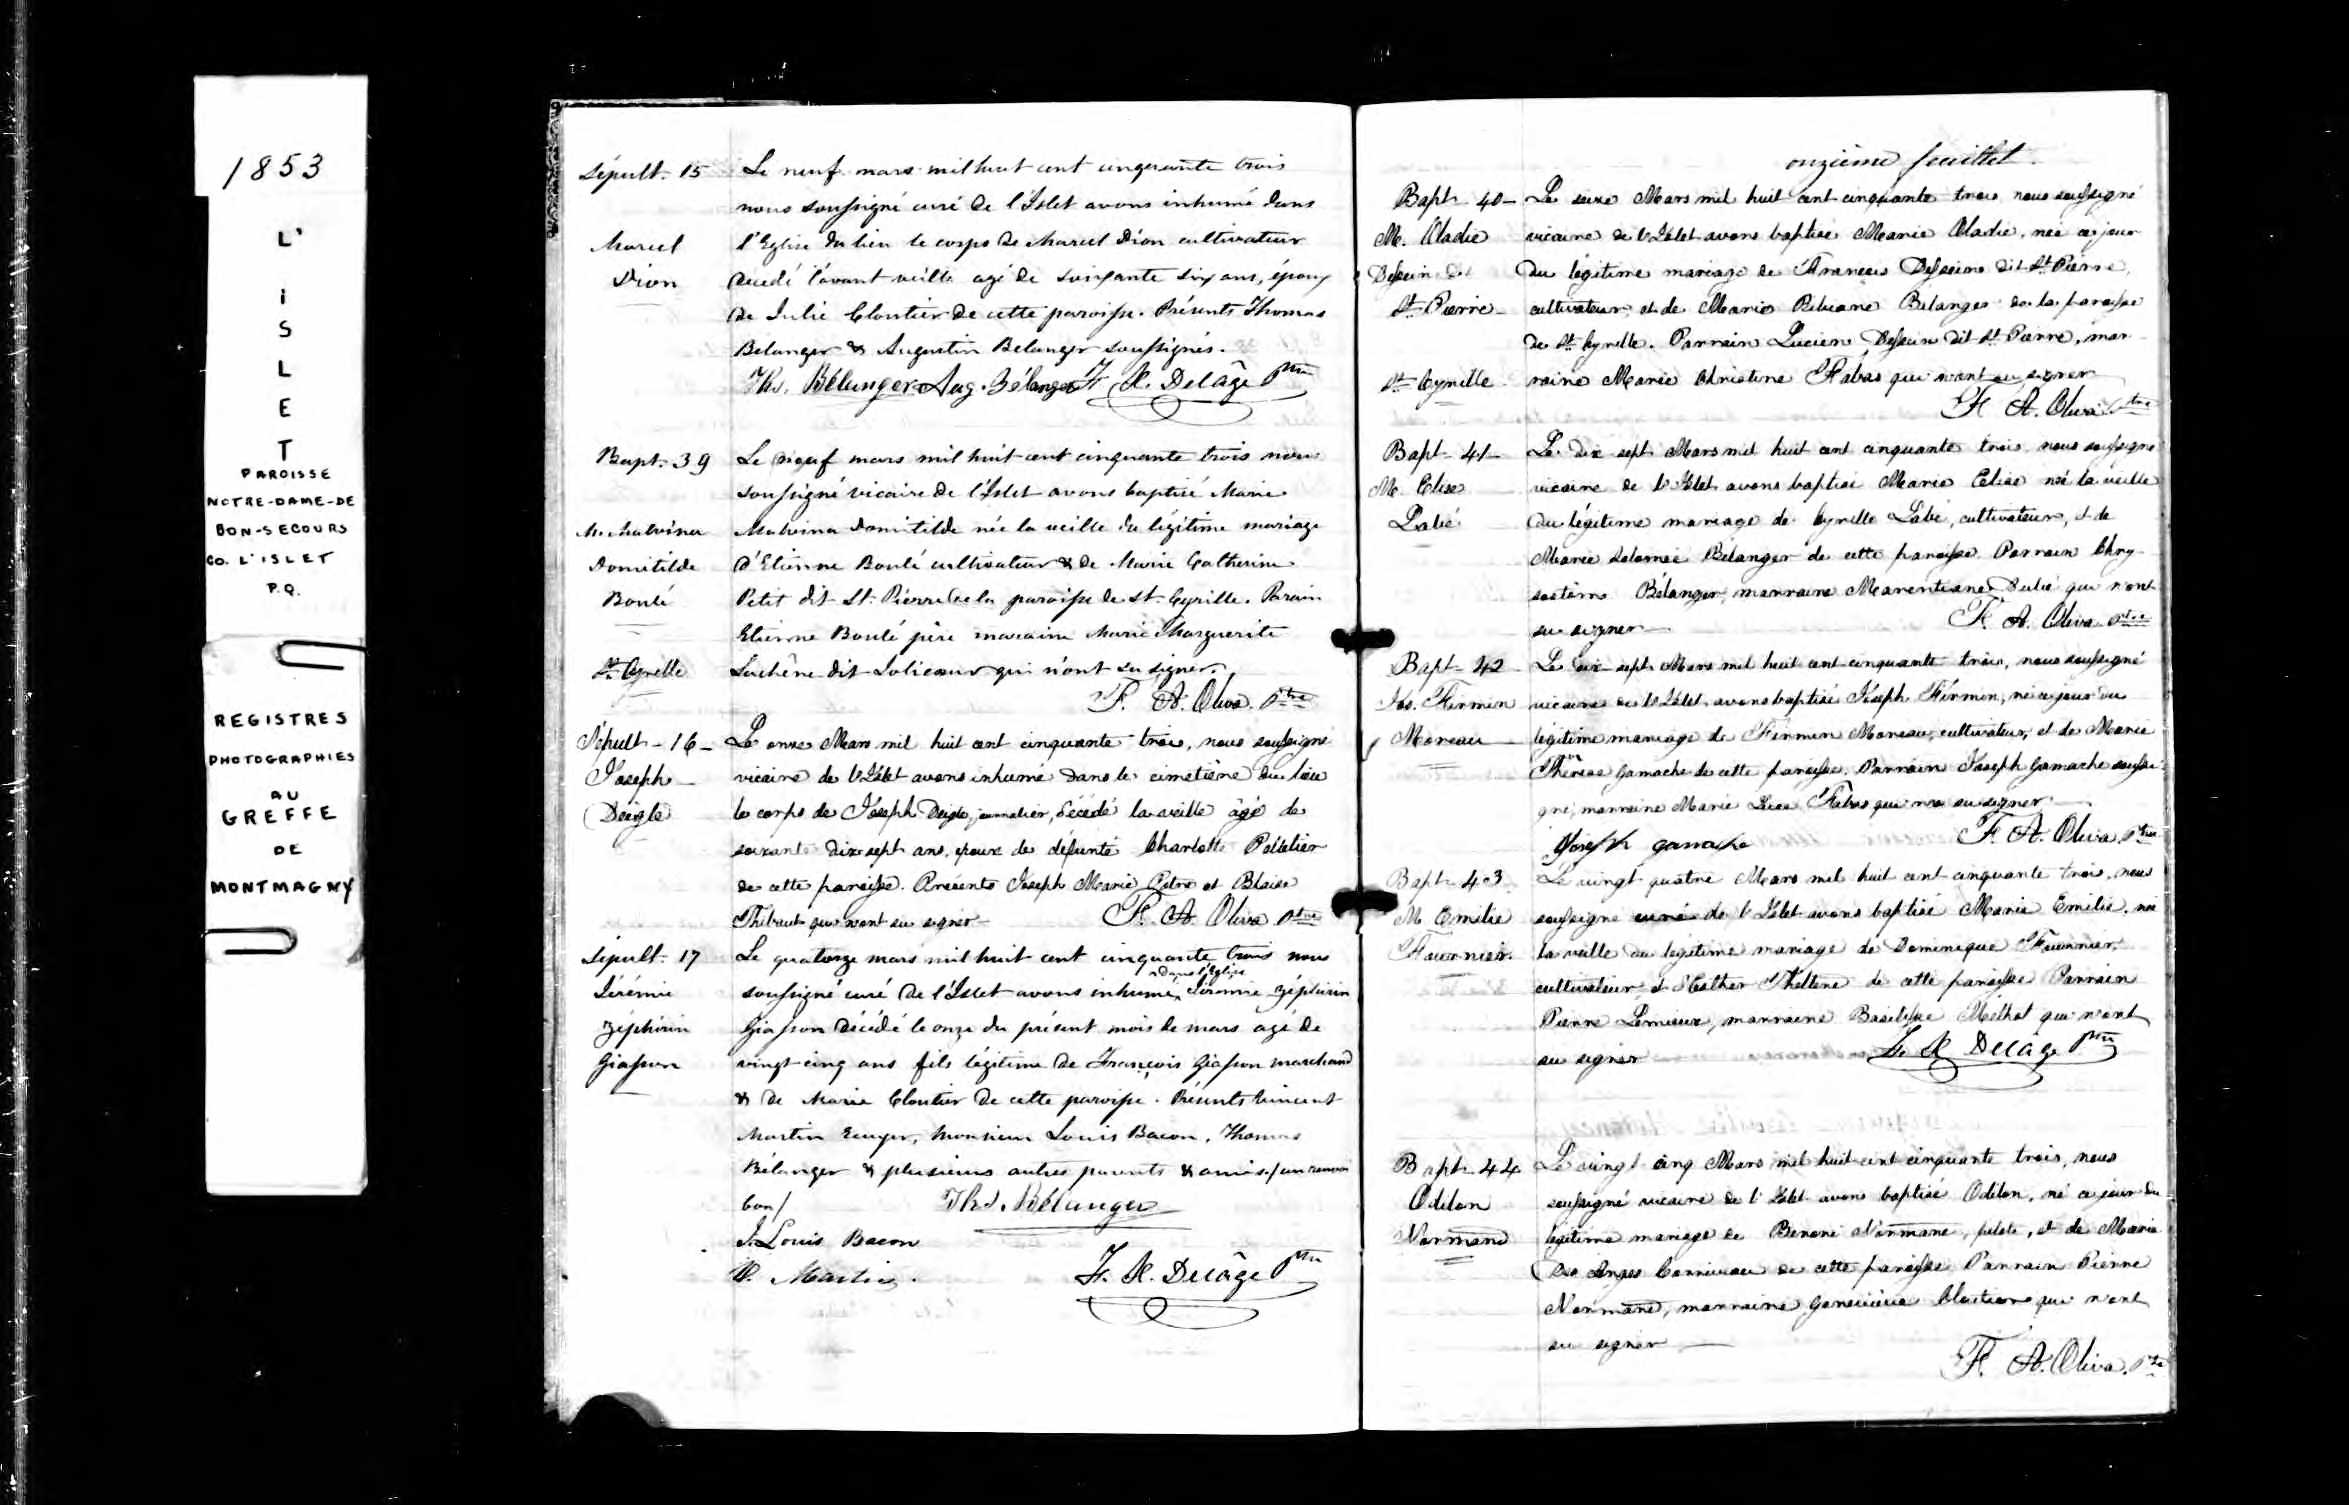 1853
L'
I
S
L
E
T
PAROISSE
NOTRE-DAME-DE
BON-SECOURS
CO. L'ISLET
P.Q.
REGISTRES
PHOTOGRAPHIES
AU
GREFFE
DE
MONTMAGNY
Sépult. 15
Marcel
Dion
Le neuf mars mil huit cent cinquante trois
nous soussigné curé de l'Islet avons inhumé dans
l'Eglise du lieu le corps de Marcel Dion cultivateur
décédé l'avant veille agé de soixante six ans, époux
de Julie Cloutier de cette paroisse. Présents Thomas
Belanger & Augustin Belanger soussignés.
Ths. Bélanger Aug. Bélanger F. X. Delâge Ptre
Bapt. 39
M. Malvina
Domitilde
Boulé
St. Cyrille
Le neuf mars mil huit cent cinquante trois nous
soussigné vicaire de l'Islet avons baptisé Marie
Malvina Domitilde née la veille du légitime mariage
d'Etienne Boulé cultivateur & de Marie Catherine
Petit dit St. Pierre de la paroisse de St. Cyrille. Parain
Etienne Boulé père maraine Marie Marguerite
Lachêne dit Jolicoeur qui n'ont su signer.
F. A. Oliva. Ptre
Sépult - 16 -
Joseph
Deigle
Le onze Mars mil huit cent cinquante trois, nous soussigné
vicaire de l'Islet avons inhumé dans le cimetière du lieu
le corps de Joseph Deigle, journalier, décédé la veille âgé de
soixante dix sept ans, époux de défunte Charlotte Pelletier
de cette paroisse. Présents Joseph Marie et Blaise
Thibaut qui n'ont su signer
F. A. Oliva Ptre
Sépult. 17
Jérémie
Zéphirin
Giasson
Le quatorze mars mil huit cent cinquante trois nous
dans l'Eglise
soussigné curé de l'Islet avons inhumé Jérémie Zéphirin
Giasson décédé le onze du présent mois de mars agé de
vingt-cinq ans fils légitime de François Giasson marchand
& de Marie Cloutier de cette paroisse. Présents Vincent
Martin Ecuyer, Monsieur Louis Bacon, Thomas
Bélanger & plusieurs autres parents & amis./ un renvoi
bon/
Ths. Bélanger
J. Louis Bacon
V. Martin.
F. X. Delâge Ptre
onzième feuillet.
Bapt - 40 -
M. Eladie
Dessein dit
St Pierre
St Cyrille
Le seize Mars mil huit cent cinquante trois nous soussigné
vicaire de l'Islet avons baptisé Marie Eladie, née ce jour
du légitime mariage de François Dessein dit St Pierre,
cultivateur, et de Marie Belanger de la paroisse
de St Cyrille. Parrain Lucien Dessein dit St Pierre, mar-
raine Marie Christine qui n'ont su signer
F. A. Oliva Ptre
Bapt - 41 -
M. Elise
Labé
Le dix sept Mars mil huit cent cinquante trois nous soussigné
vicaire de l'Islet avons baptisé Marie Elise né la veille
du légitime mariage de Cyrille Labé, cultivateur, et de
Marie Salomée Bélanger de cette paroisse. Parrain Chry-
sostôme Bélanger, marraine Dubé qui n'ont
su signer
F. A. Oliva Ptre
Bapt - 42
Jos. Firmin
Moreau
Le dix sept Mars mil huit cent cinquante trois, nous soussigné
vicaire de l'Islet avons baptisé Joseph Firmin, né ce jour du
légitime mariage de Firmin Moreau, cultivateur, et de Marie
Thérèse Gamache de cette paroisse. Parrain Joseph Gamache soussi-
gné, marraine Marie qui n'a su signer
Joseph gamache
F. A. Oliva Ptre
Bapt - 43
M Emélie
Fournier
Le vingt quatre Mars mil huit cent cinquante trois, nous
soussigné curé de l'Islet avons baptisé Marie Emélie, née
la veille du légitime mariage de Dominique Fournier
cultivateur et d'Esther de cette paroisse Parrain
Pierre Lemieux, marraine Basilisse qui n'ont
su signer
F. X. Delâge Ptre
Bapt - 44
Odilon
Normand
Le vingt cinq Mars mil huit cent cinquante trois, nous
soussigné vicaire de l'Islet avons baptisé Odilon, né ce jour du
légitime mariage de Benoni Normand, pilote, et de Marie
Des Anges Corriveau de cette paroisse Parrain Pierre
Normand, marraine Geneviève Cloutier qui n'ont
su signer
F. A. Oliva. Ptre